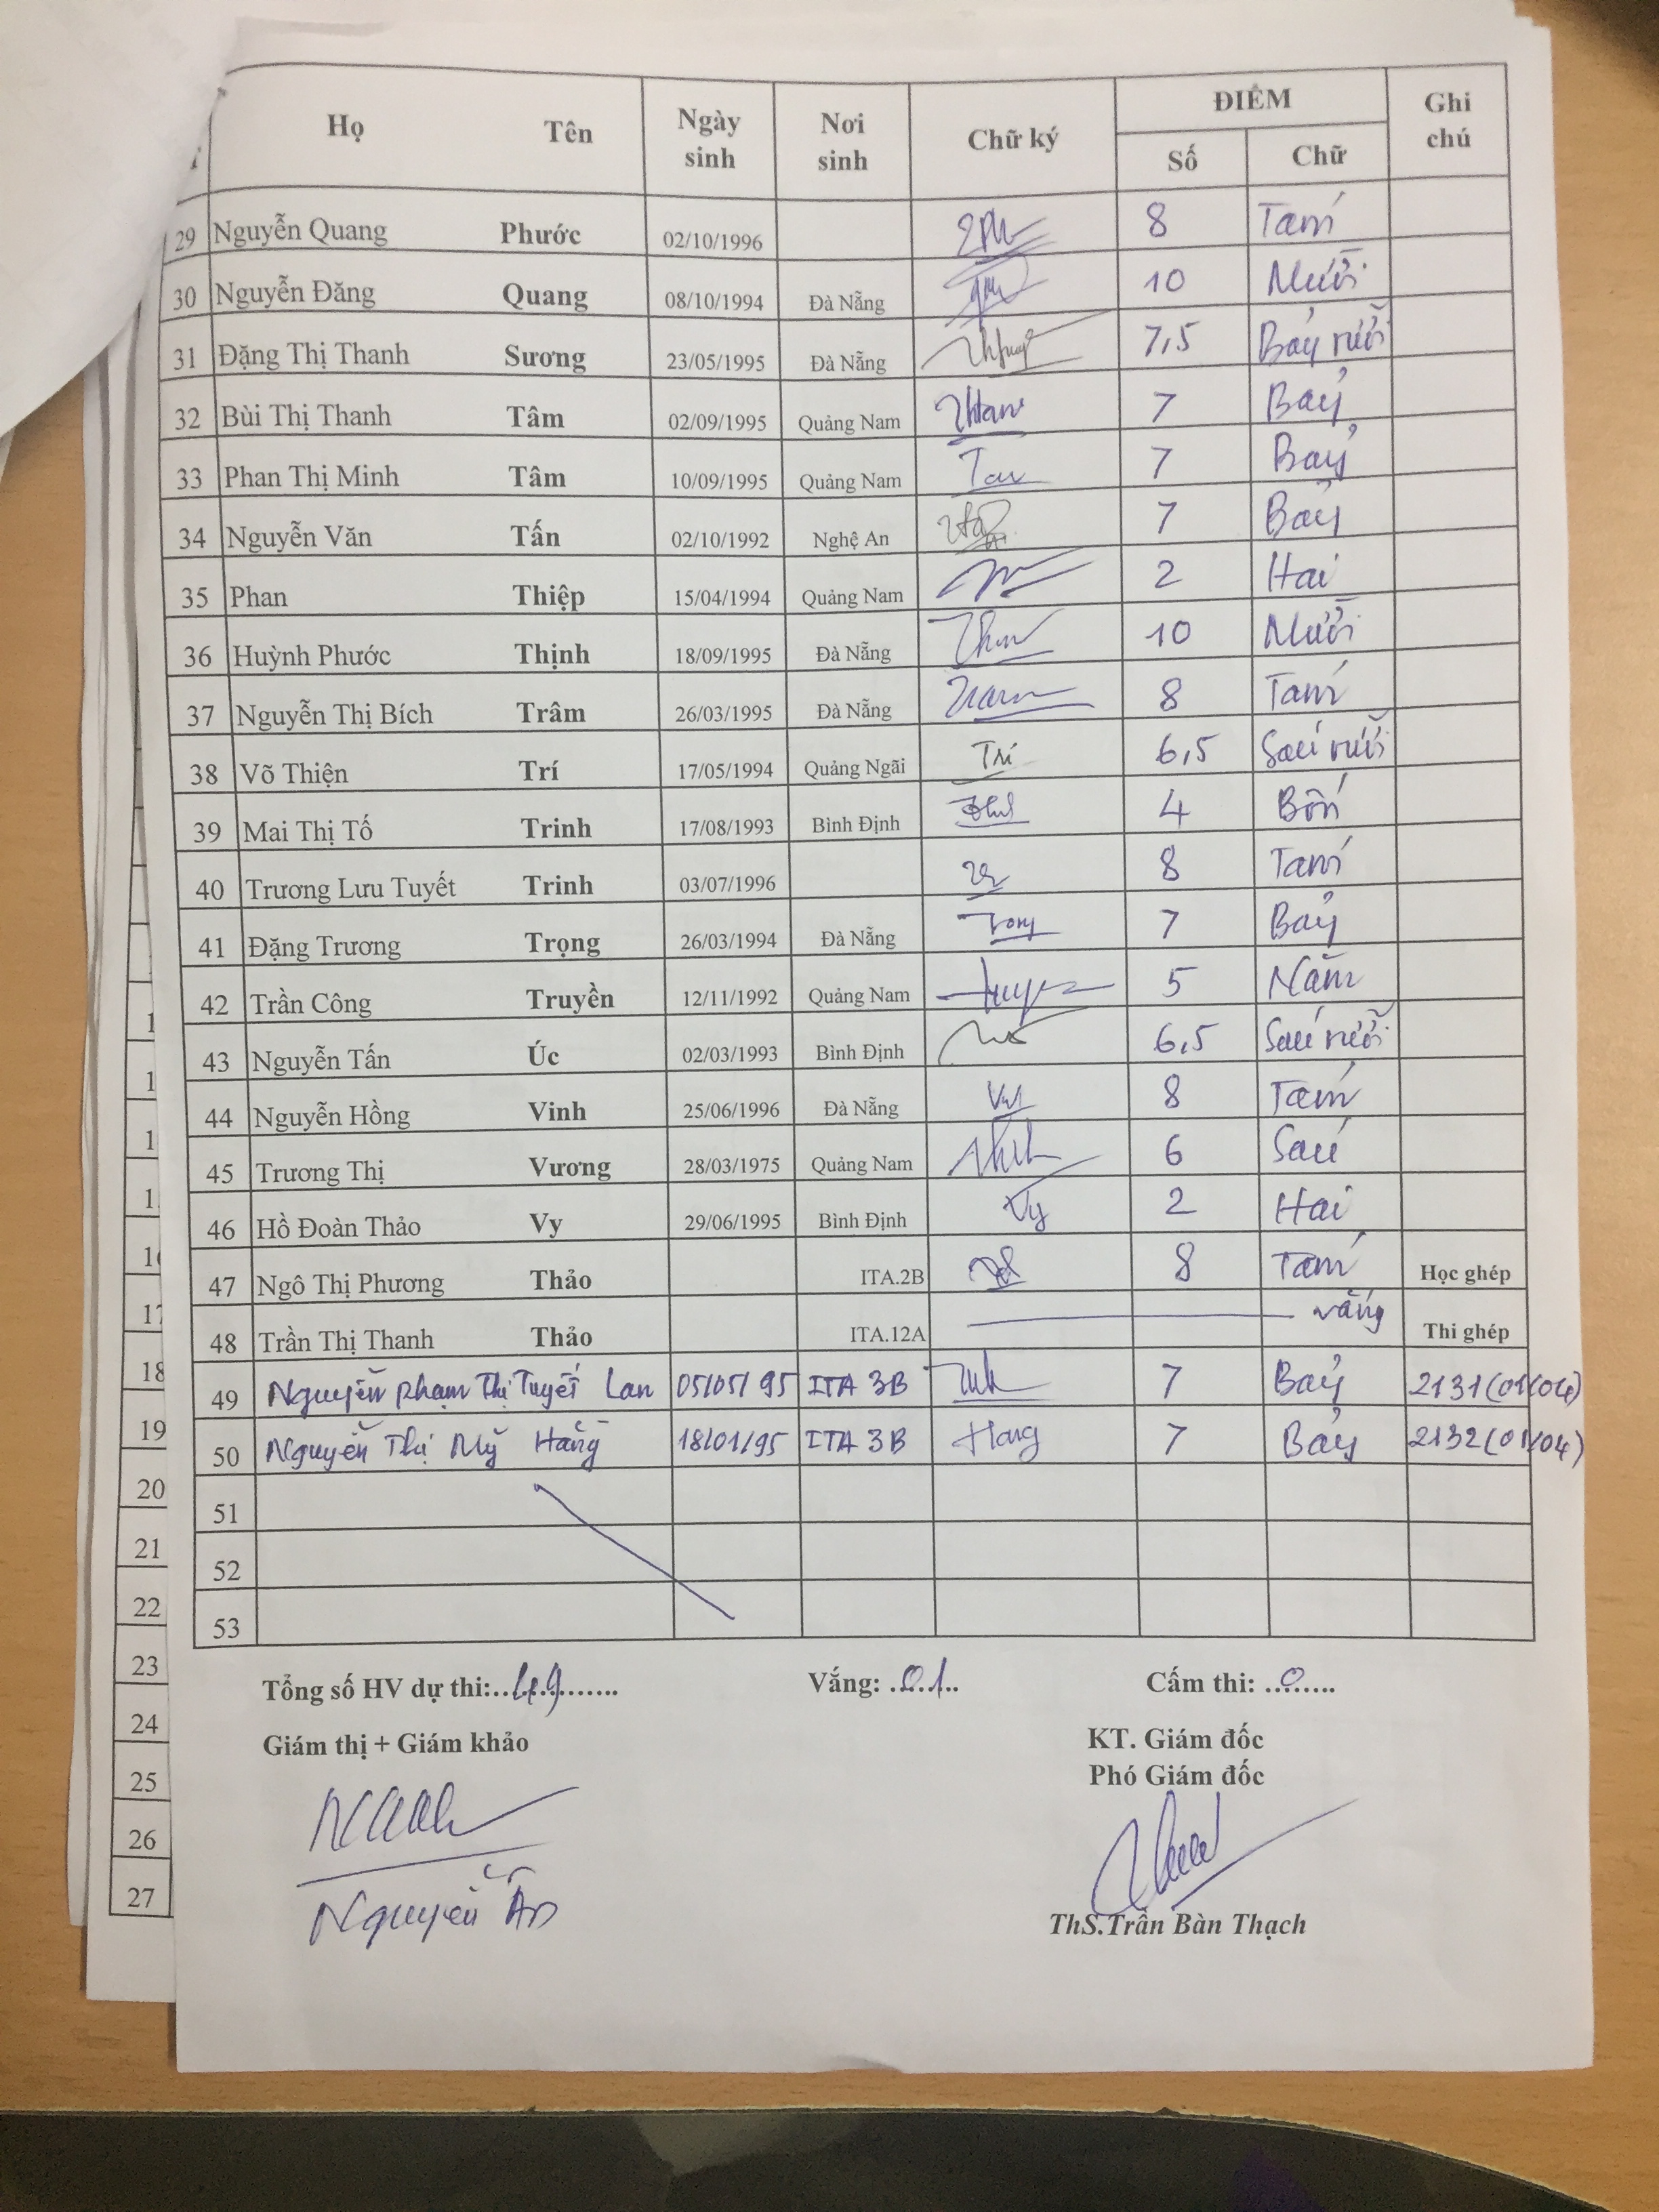 Họ Tên Ngày sinh Nơi sinh Chữ ký ĐIỂM Số Chữ Ghi chú
29 Nguyễn Quang Phước 02/10/1996 8 Tám
30 Nguyễn Đăng Quang 08/10/1994 Đà Nẵng 10 Mười
31 Đặng Thị Thanh Sương 23/05/1995 Đà Nẵng 7,5 Bảy rưỡi
32 Bùi Thị Thanh Tâm 02/09/1995 Quảng Nam 7 Bảy
33 Phan Thị Minh Tâm 10/09/1995 Quảng Nam 7 Bảy
34 Nguyễn Văn Tấn 02/10/1992 Nghệ An 7 Bảy
35 Phan Thiệp 15/04/1994 Quảng Nam 2 Hai
36 Huỳnh Phước Thịnh 18/09/1995 Đà Nẵng 10 Mười
37 Nguyễn Thị Bích Trâm 26/03/1995 Đà Nẵng 8 Tám
38 Võ Thiện Trí 17/05/1994 Quảng Ngãi Trí 6,5 Sáu rưỡi
39 Mai Thị Tố Trinh 17/08/1993 Bình Định 4 Bốn
40 Trương Lưu Tuyết Trinh 03/07/1996 8 Tám
41 Đặng Trương Trọng 26/03/1994 Đà Nẵng 7 Bảy
42 Trần Công Truyền 12/11/1992 Quảng Nam 5 Năm
43 Nguyễn Tấn Úc 02/03/1993 Bình Định 6,5 Sáu rưỡi
44 Nguyễn Hồng Vinh 25/06/1996 Đà Nẵng 8 Tám
45 Trương Thị Vương 28/03/1975 Quảng Nam 6 Sáu
46 Hồ Đoàn Thảo Vy 29/06/1995 Bình Định Vy 2 Hai
47 Ngô Thị Phương Thảo ITA.2B 8 Tám Học ghép
48 Trần Thị Thanh Thảo ITA.12A vắng Thi ghép
49 Nguyễn Phạm Thị Tuyết Lan 05/05/95 ITA 3B 7 Bảy 2131(01/04)
50 Nguyễn Thị Mỹ Hằng 18/01/95 ITA 3B Hang 7 Bảy 2132(01/04)
51
52
53
Tổng số HV dự thi:..49.......... Vắng: ..01... Cấm thi: ..0.....
Giám thị + Giám khảo KT. Giám đốc
Phó Giám đốc
Nguyễn Ân
ThS.Trần Bàn Thạch
1
1
1
1
16
17
18
19
20
21
22
23
24
25
26
27